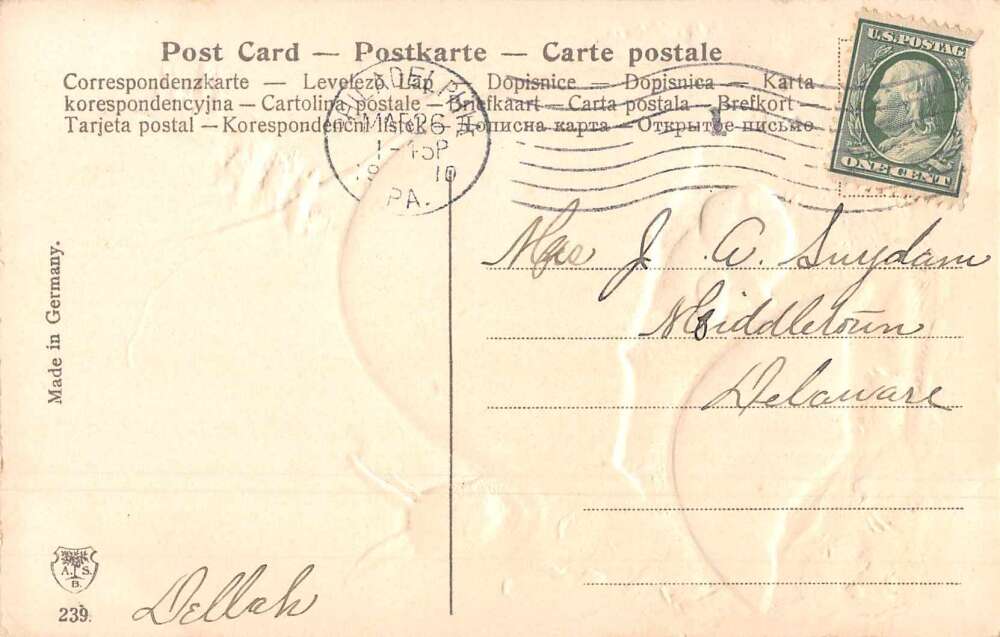 Post Card — Postkarte — Carte postale
Correspondenzkarte — Levelező Lap — Dopisnice — Dopisnica — Karta
korespondencyjna — Cartolina postale — Briefkaart — Carta postala — Brefkort —
Tarjeta postal — Korespondenční lístek — Дописна карта — Открытое письмо
PHILADELPHIA
MAR 26
1-45P
1910
PA.
U.S. POSTAG
ONE CENT
Mrs J. A. Suydam
Middletown
Delaware
Made in Germany.
A. S.
B.
239.
Dellah